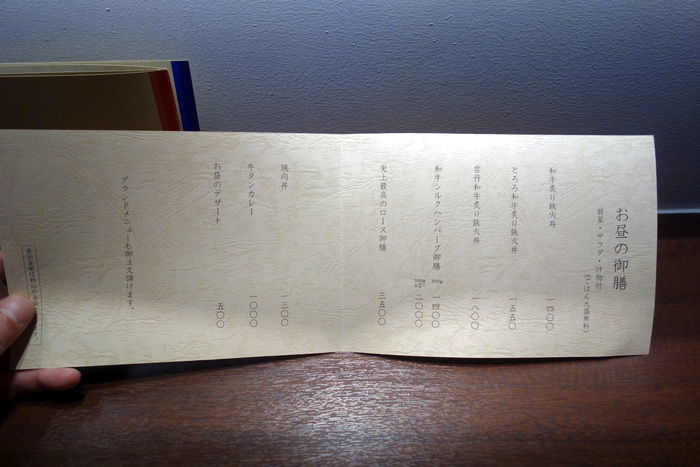 お昼の御膳
前菜・サラダ・汁物付 (ごはん大盛無料)
和牛炙り鉄火丼 一四〇〇
とろろ和牛炙り鉄火丼 一五五〇
雲丹和牛炙り鉄火丼 一八〇〇
和牛シルクハンバーグ御膳 200g 一四〇〇
二〇〇〇
史上最高のロース御膳 三五〇〇
焼肉丼 一三〇〇
牛タンカレー 一〇〇〇
お昼のデザート 五〇〇
グランドメニューも御注文頂けます。